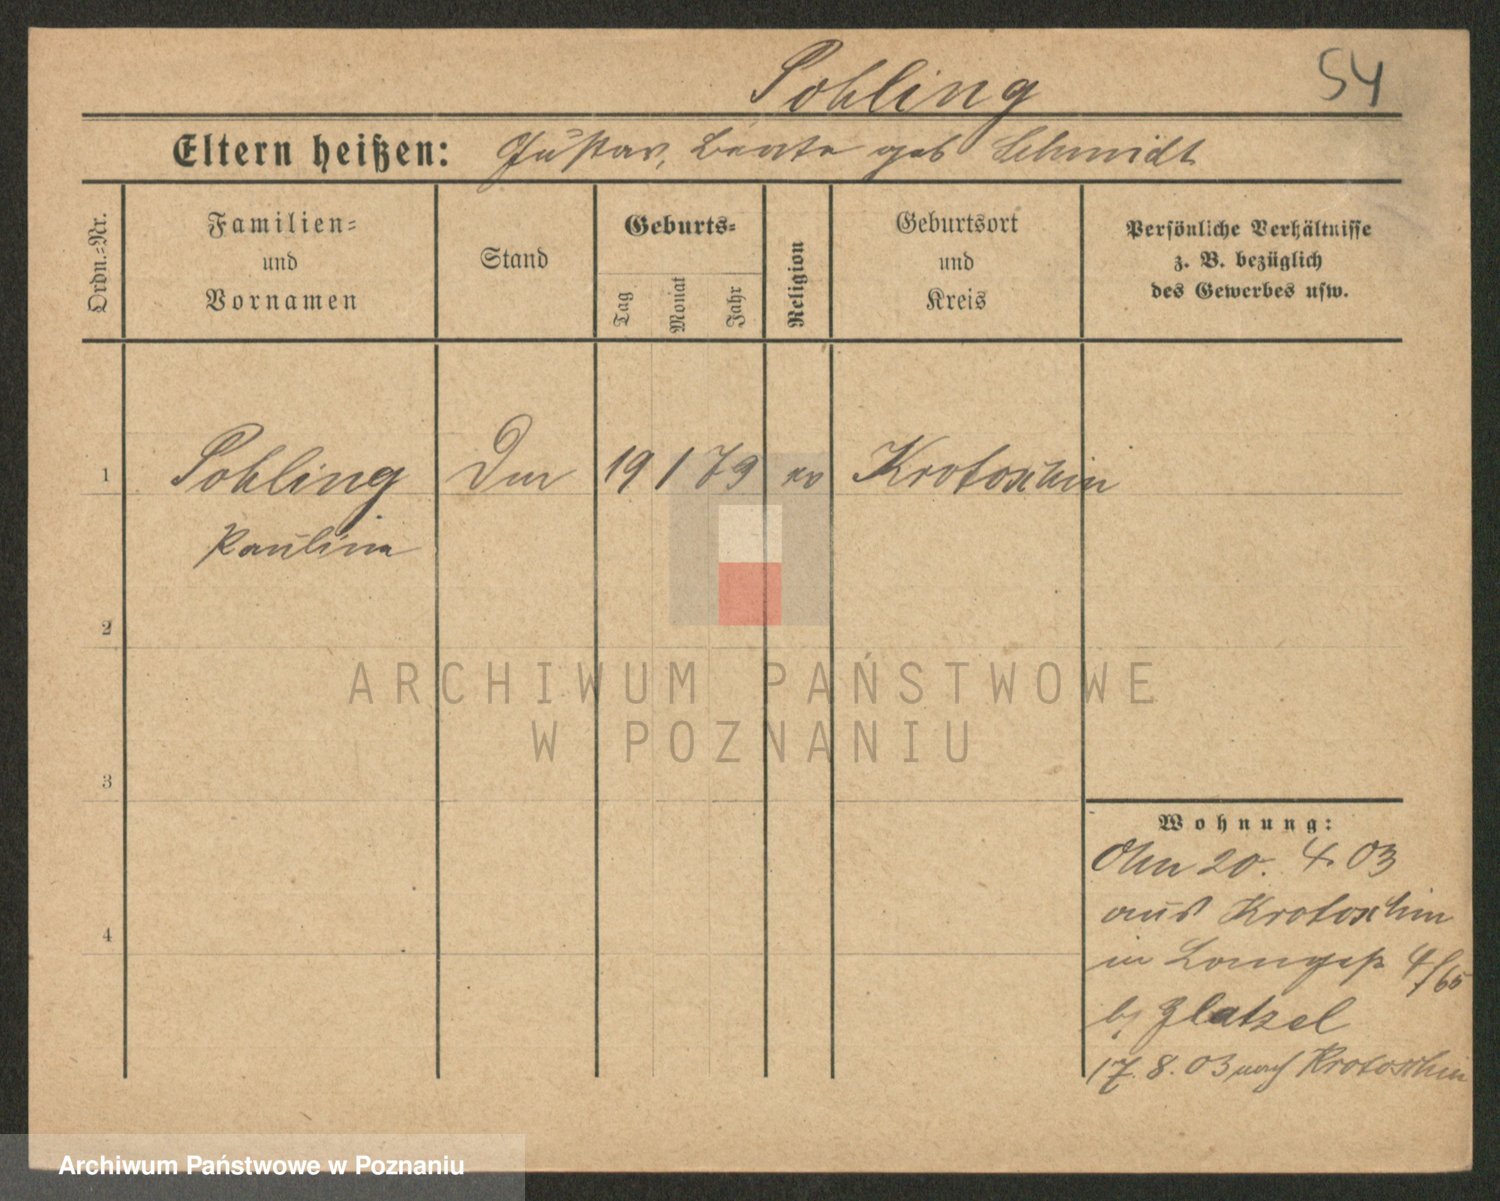 Pohling 54
Eltern heißen: Gustav, Beate geb Schmidt
Ordn.=Nr.
Familien=
und
Vornamen
Stand
Geburts=
Tag
Monat
Jahr
Religion
Geburtsort
und
Kreis
Persönliche Verhältnisse
z. B. bezüglich
des Gewerbes usw.
1 Pohling 19 1 79 ev Krotoschin
Paulina
2
3
4
Wohnung:
20. 4. 03
aus Krotoschin
in
bei Glatzel
17. 8. 03 nach Krotoschin
ARCHIWUM PAŃSTWOWE
W POZNANIU
Archiwum Państwowe w Poznaniu